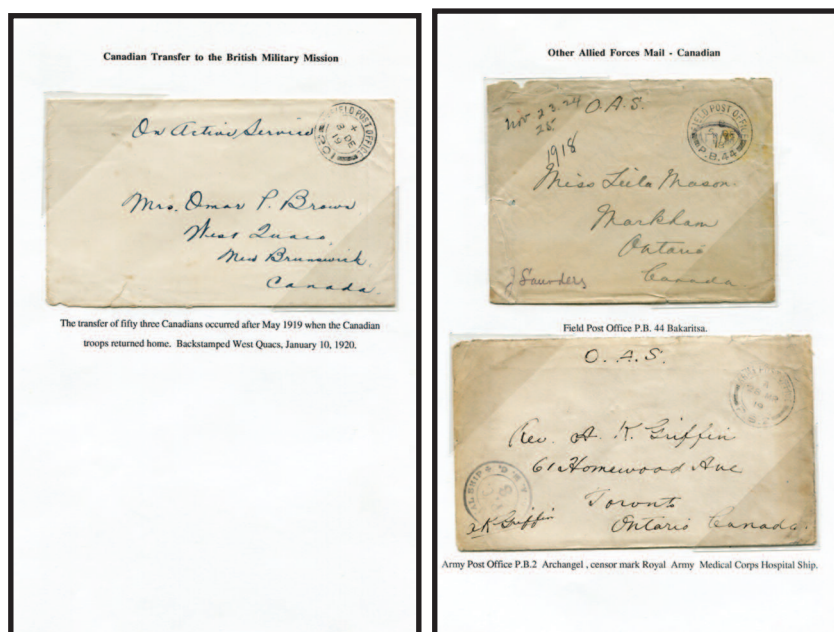 Canadian Transfer to the British Military Mission
On Active Service
FIELD POST OFFICE
X
8 DE
19
Mrs. Omar P. Brown
West Quaco
New Brunswick
Canada.
The transfer of fifty three Canadians occurred after May 1919 when the Canadian
troops returned home. Backstamped West Quacs, January 10, 1920.
Other Allied Forces Mail - Canadian
Nov 23. 24
25
1918
O.A.S.
FIELD POST OFFICE
P.B.44
Miss Leila Mason.
Markham
Ontario
Canada
J Saunders
Field Post Office P.B. 44 Bakaritsa.
O.A.S.
19
Rev. A. K. Griffin
61 Homewood Ave
Toronto
Ontario Canada.
AL SHIP
AK Griffin
Army Post Office P.B.2 Archangel , censor mark Royal Army Medical Corps Hospital Ship.